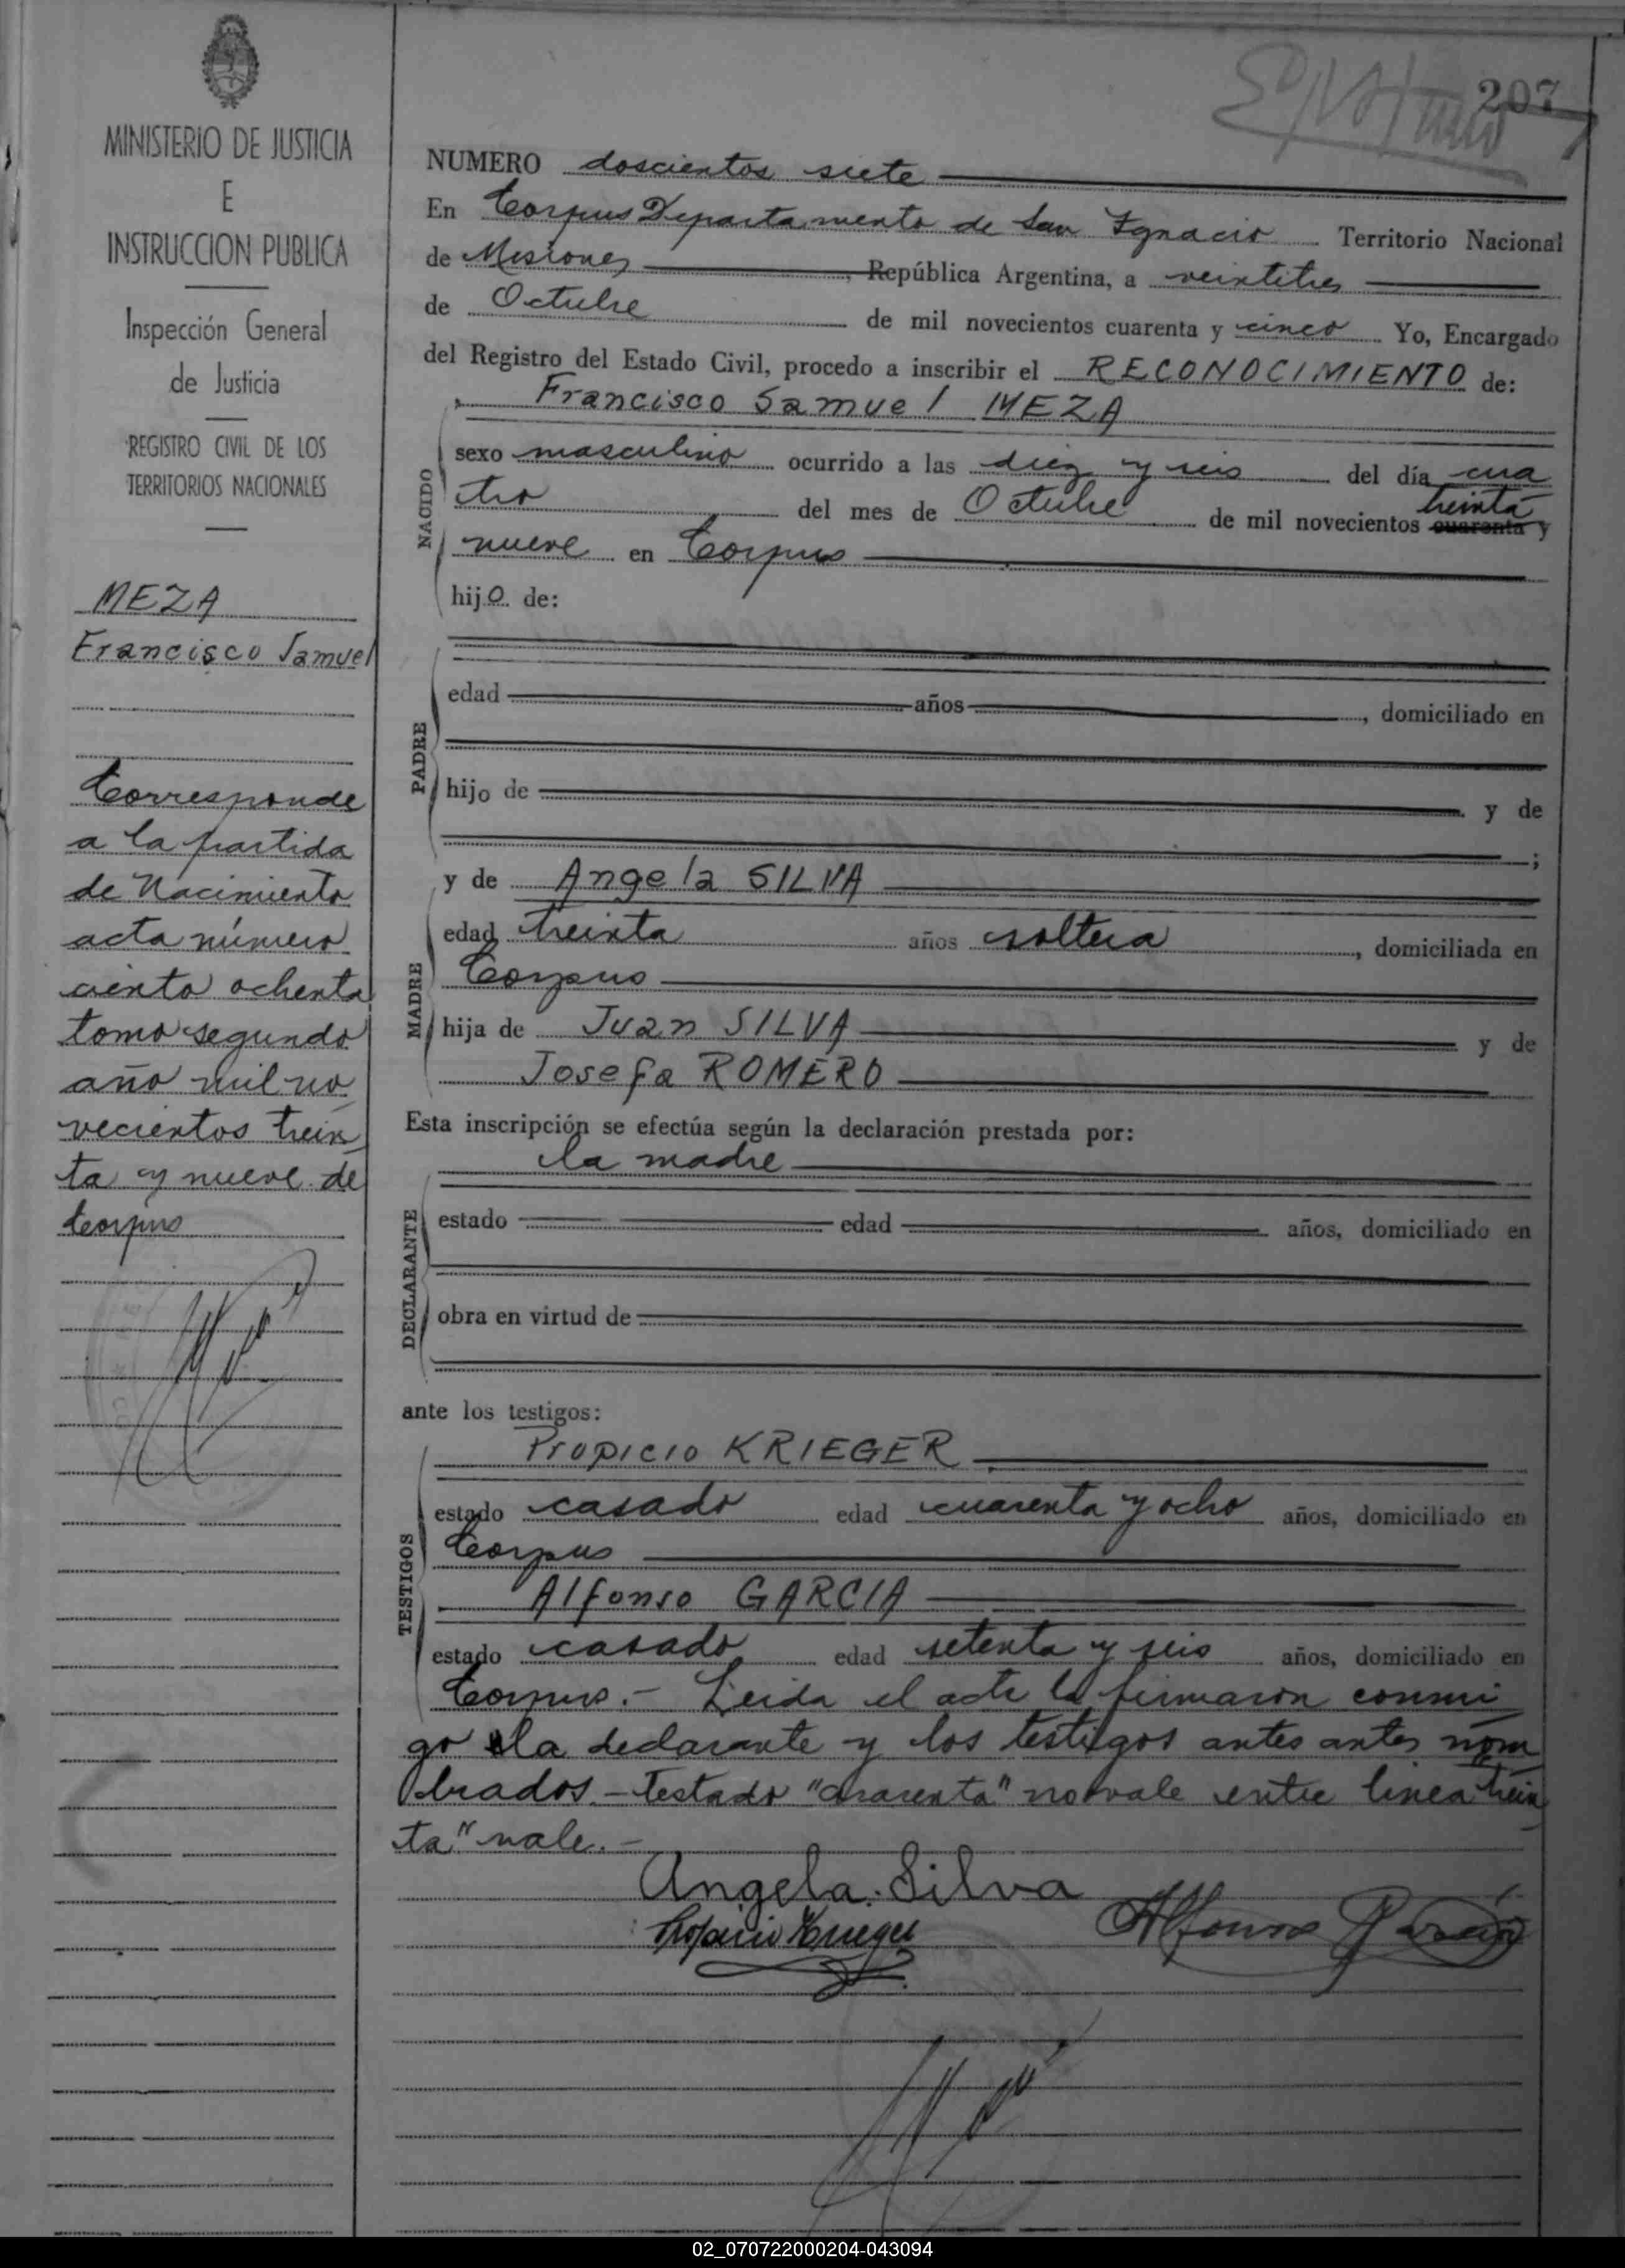 MINISTERIO DE JUSTICIA
E
INSTRUCCION PUBLICA
Inspección General
de Justicia
REGISTRO CIVIL DE LOS
TERRITORIOS NACIONALES
MEZA
Francisco Samuel
Corresponde
a la partida
de Nacimiento
acta número
ciento ochenta
tomo segundo
año mil no
vecientos trein
ta y nueve de
Corpus
207
NUMERO doscientos siete
En Corpus Departamento de San Ignacio Territorio Nacional
de Misiones, República Argentina, a veintitres
de Octubre de mil novecientos cuarenta y cinco Yo, Encargado
del Registro del Estado Civil, procedo a inscribir el RECONOCIMIENTO de:
Francisco Samuel MEZA
NACIDO
sexo masculino ocurrido a las diez y seis del día cua
tro del mes de Octubre de mil novecientos cuarenta treinta y
nueve en Corpus
hijo de:
PADRE
edad años, domiciliado en
hijo de y de
;
y de Angela SILVA
MADRE
edad treinta años soltera, domiciliada en
Corpus
hija de Juan SILVA y de
Josefa ROMERO
Esta inscripción se efectúa según la declaración prestada por:
la madre
DECLARANTE
estado edad años, domiciliado en
obra en virtud de
ante los testigos:
TESTIGOS
Propicio KRIEGER
estado casado edad cuarenta y ocho años, domiciliado en
Corpus
Alfonso GARCIA
estado casado edad setenta y seis años, domiciliado en
Corpus.- Leida el acta la firmaron conmi
go la declarante y los testigos antes antes nom
brados.- Testado "cuarenta" no vale entre linea trein
ta" vale.-
Angela. Silva
Propicio Krieger Alfonso García
02_070722000204-043094